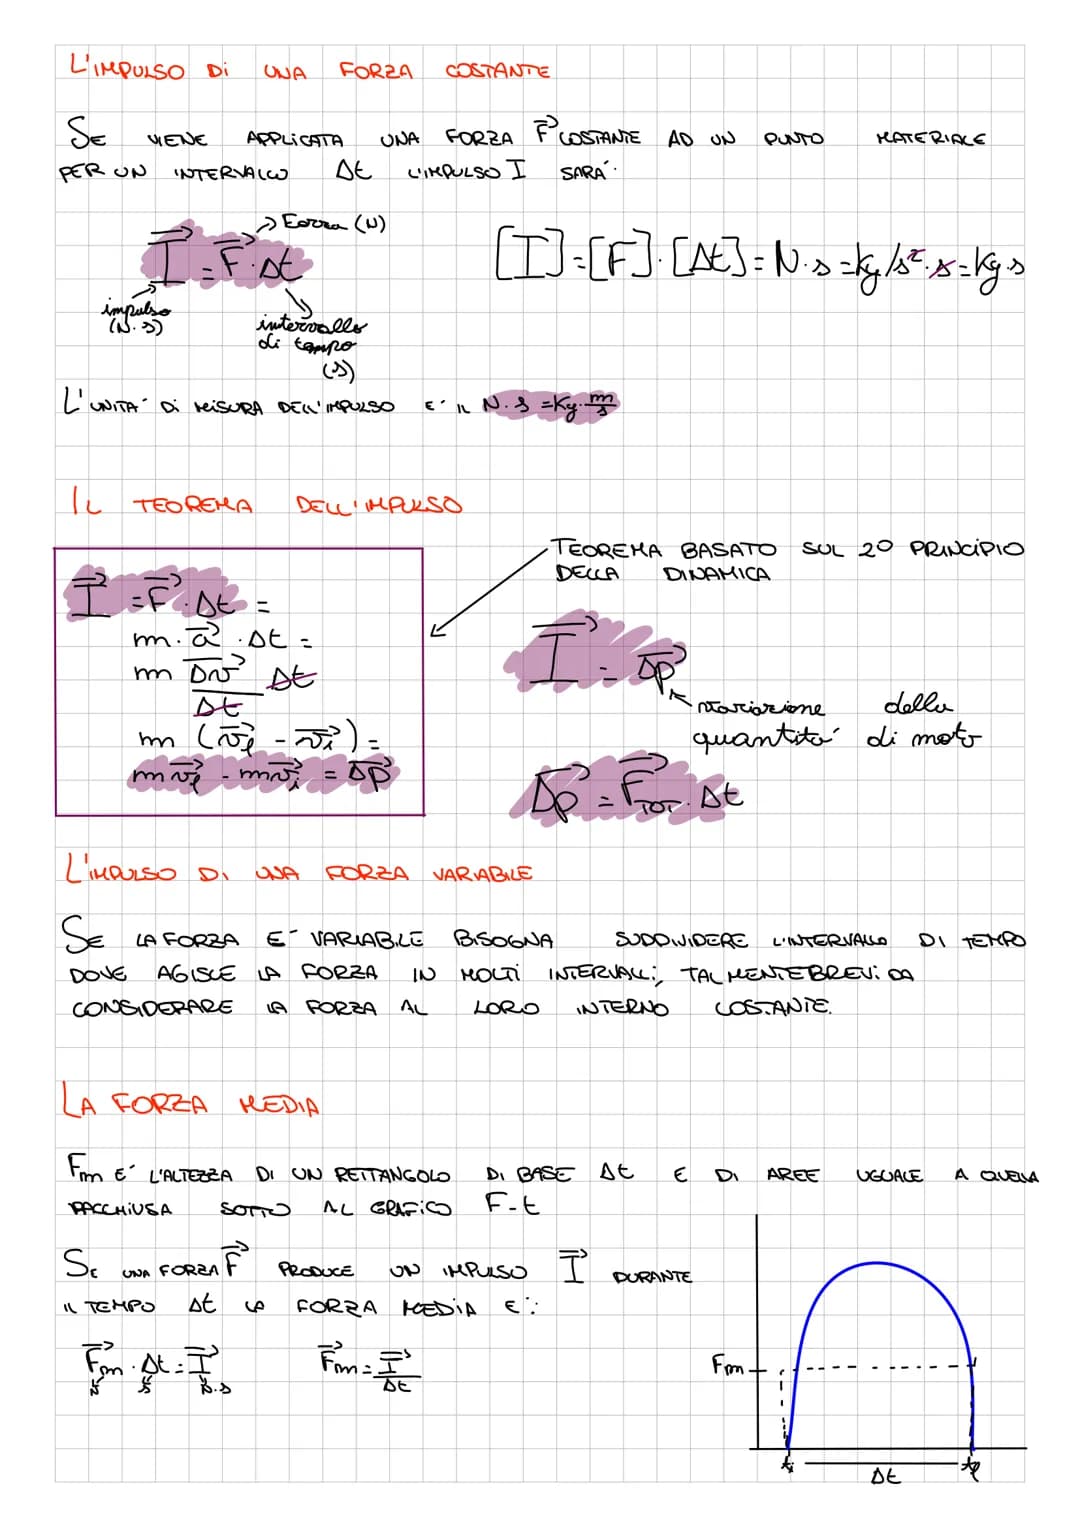 L'IMPULSO Di UNA FORZA COSTANTE
SE VIENE APPLICATA UNA FORZA F⃗ COSTANTE AD UN PUNTO MATERIALE
PER UN INTERVALLO Δt L'IMPULSO I SARA':
→ Forza (N)
I⃗ = F⃗ · Δt
[I] = [F] · [Δt] = N · s = kg/s² · s = kg · s
impulso
(N · s)
intervallo
di tempo
(s)
L'UNITA' Di MISURA DELL'IMPULSO E' IL N · s = Kg · m/s
IL TEOREMA DELL'IMPULSO
TEOREMA BASATO SUL 2° PRINCIPIO
DELLA DINAMICA
I⃗ = F⃗ · Δt =
m · a⃗ · Δt =
m Δv⃗/Δt Δt
m (v⃗f - v⃗i) =
m v⃗f - m v⃗i = Δp⃗
I⃗ = Δp⃗
variazione della
quantità di moto
Δp⃗ = F⃗TOT · Δt
L'IMPULSO DI UNA FORZA VARIABILE
SE LA FORZA E' VARIABILE BISOGNA SUDDIVIDERE L'INTERVALLO DI TEMPO
DOVE AGISCE LA FORZA IN MOLTI INTERVALLI, TALMENTE BREVI DA
CONSIDERARE LA FORZA AL LORO INTERNO COSTANTE.
LA FORZA MEDIA
Fm E' L'ALTEZZA DI UN RETTANGOLO DI BASE Δt E DI AREE UGUALE A QUELLA
RACCHIUSA SOTTO AL GRAFICO F-t
SE UNA FORZA F⃗ PRODUCE UN IMPULSO I⃗ DURANTE
IL TEMPO Δt LA FORZA MEDIA E':
F⃗m · Δt = I⃗
N s N · s
F⃗m = I⃗/Δt
Fm
ti Δt tf